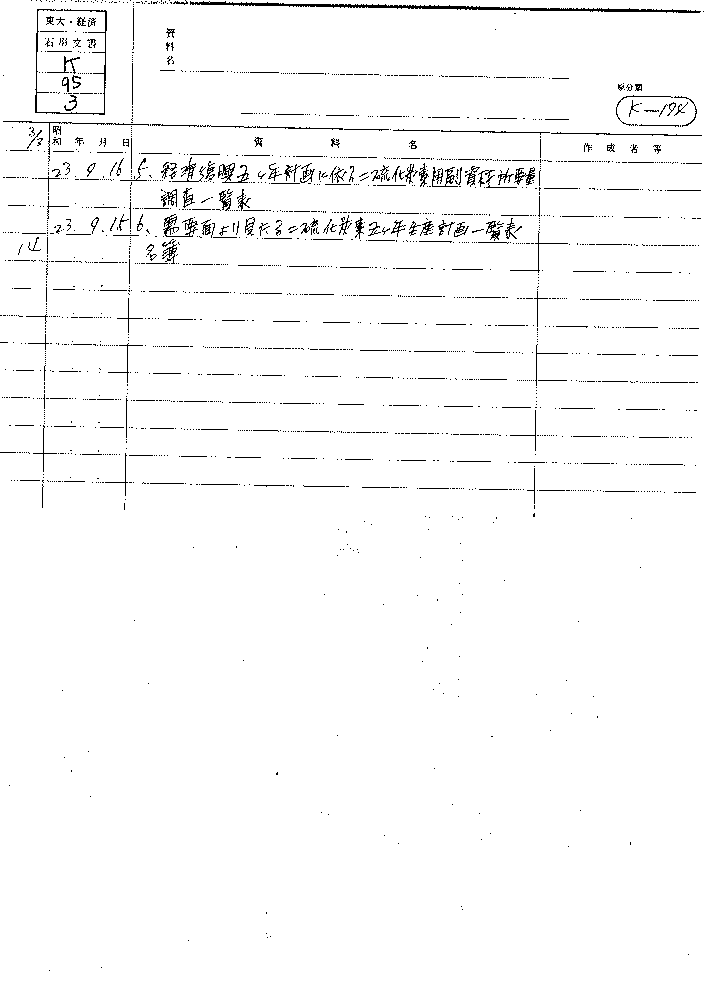 東大・経済
石川文書
K
95
3
資料名
原分類
K-174
3/3
昭和 年 月 日
資 料 名
作 成 者 等
23 9 16 5、経済復興五ヶ年計画に依る二硫化炭素用副資材所要量
調査一覧表
23. 9. 15 6、需要面より見たる二硫化炭素五ヶ年生産計画一覧表
14 名簿